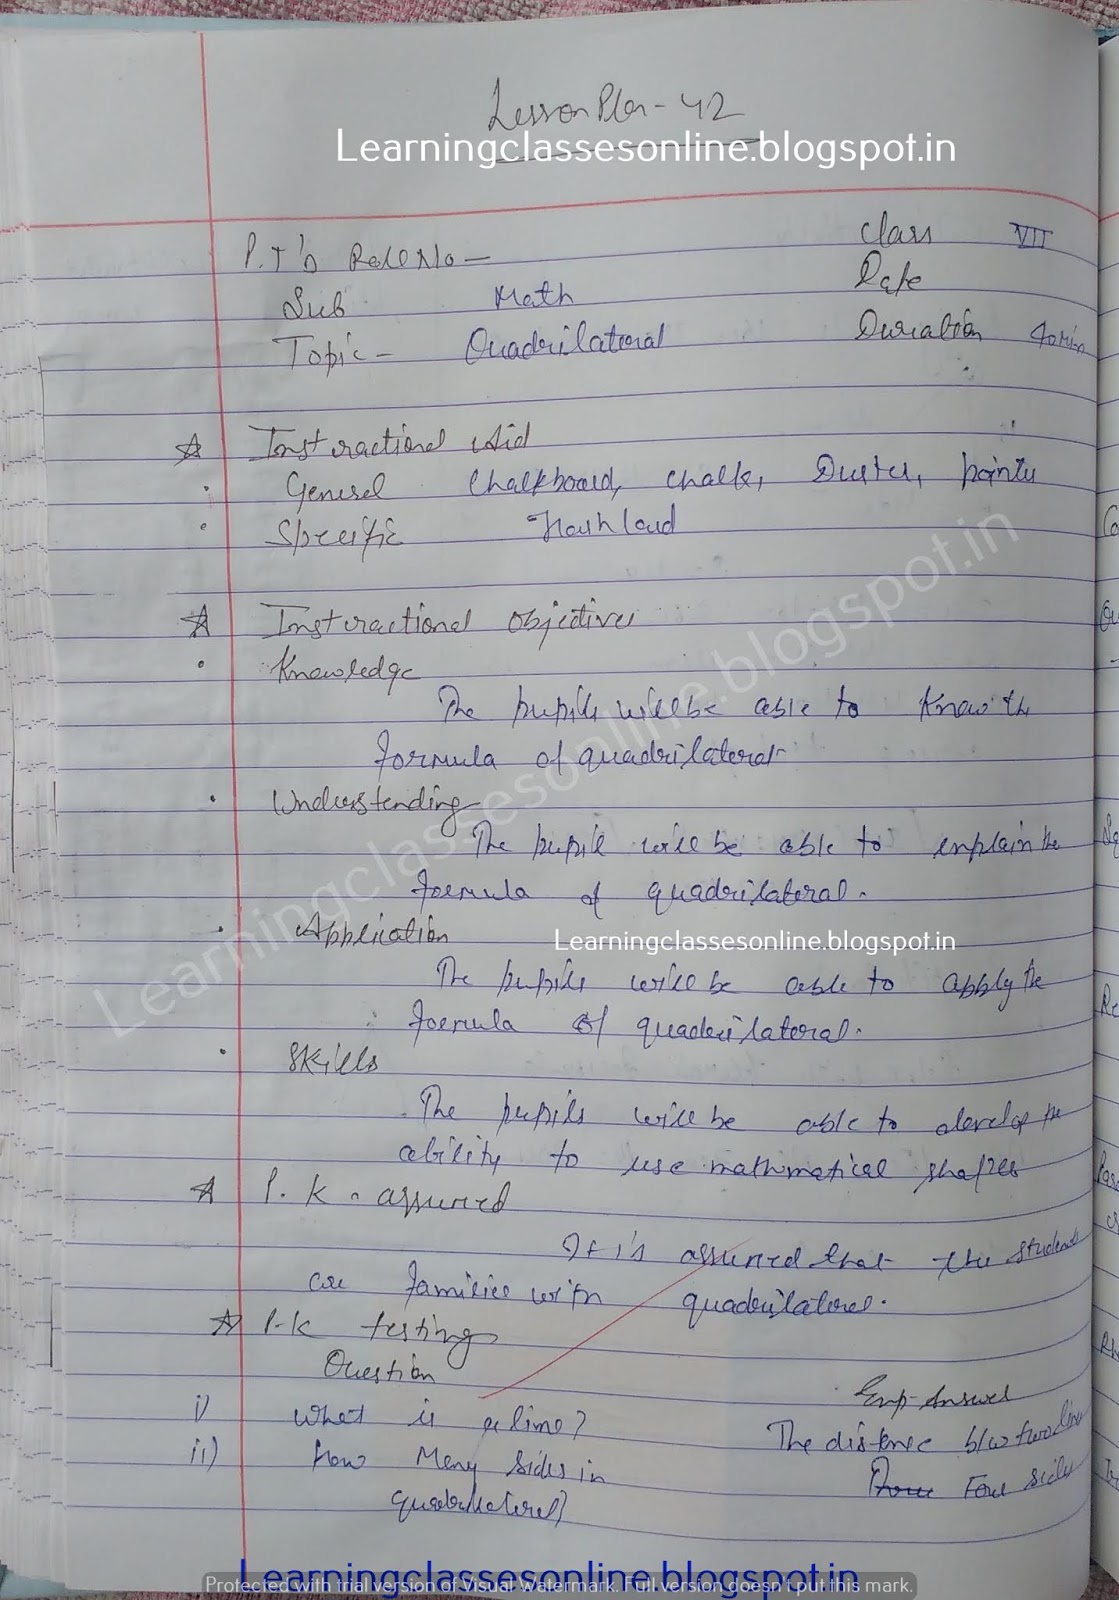 Lesson Plan - 42
Learningclassesonline.blogspot.in
P.T's Roll No - Class VII
Sub Math Date
Topic - Quadrilateral Duration 40 min
Instractional Aid
General Chalkboard, chalk, Duster, pointer
Specific Flash Card
Instractional Objectives
Knowledge
The pupils will be able to Know the
formula of quadrilateral
Understanding
The pupil will be able to explain the
formula of quadrilateral.
Application
Learningclassesonline.blogspot.in
The pupils will be able to apply the
formula of quadrilateral.
Skills
The pupils will be able to develop the
ability to use mathmatical shapes
P.K. assumed
It is assumed that the students
are familier with quadrilateral.
P.K testing
Question Exp. Answer
i) What is a line? The distence b/w two line
ii) How Many Sides in Four sides
quadrilateral?
Learningclassesonline.blogspot.in
Learningclassesonline.blogspot.in
Protected with trial version of Visual Watermark. Full version doesn't put this mark.